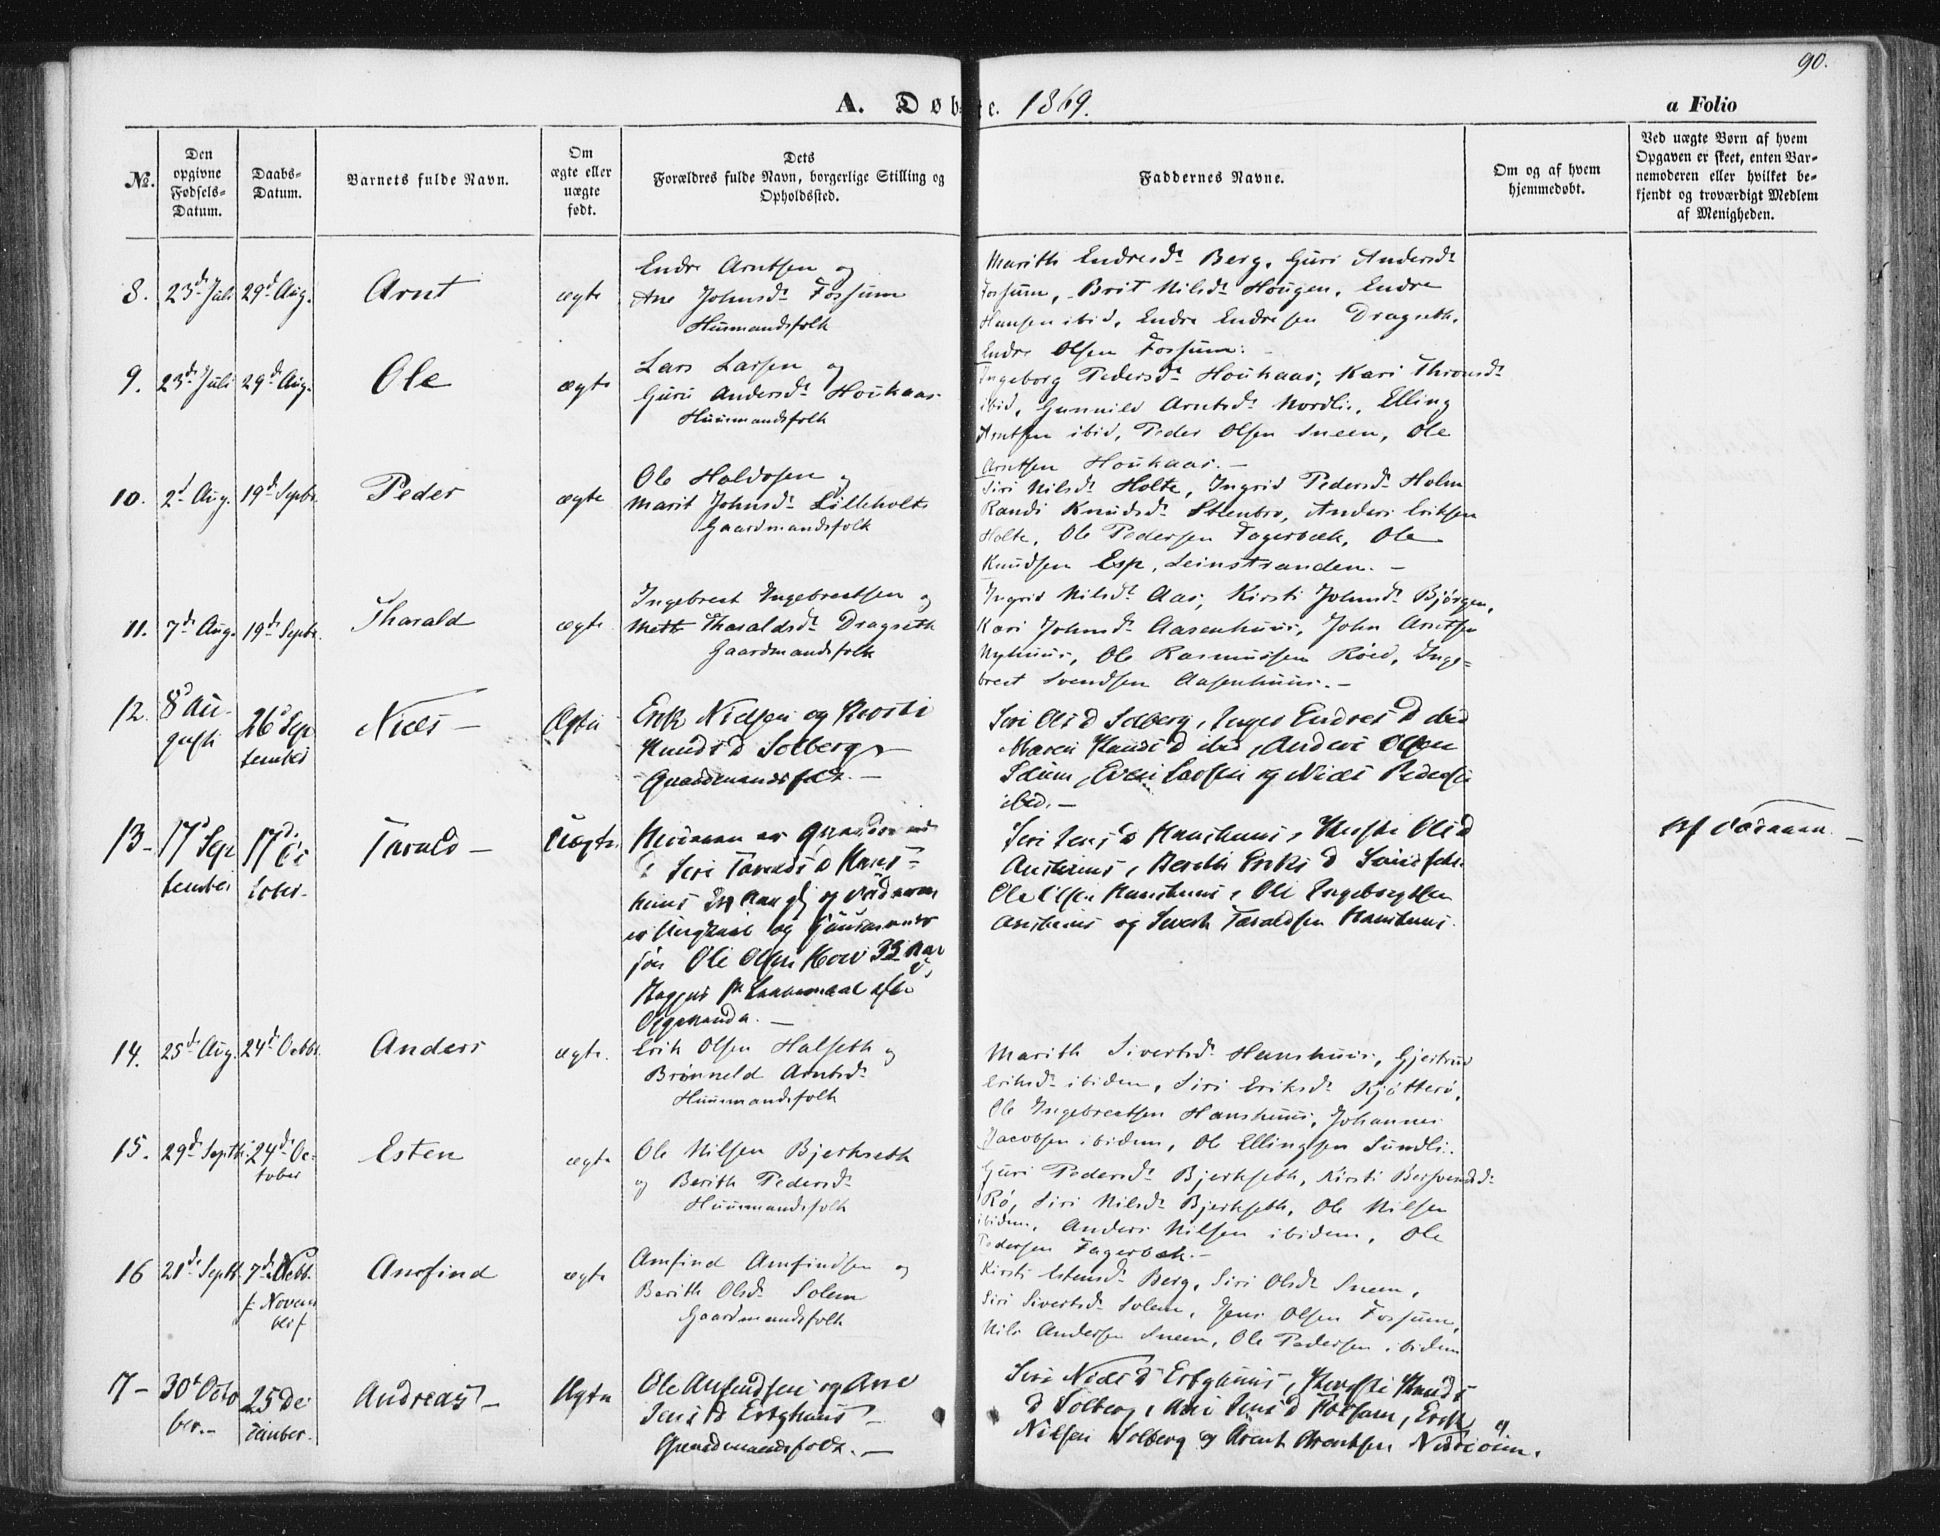 90.
A. Døbte. 1869.
a Folio
№.
Den opgivne Fødsels-Datum.
Daabs-Datum.
Barnets fulde Navn.
Om ægte eller uægte født.
Dets Forældres fulde Navn, borgerlige Stilling og Opholdssted.
Faddernes Navne.
Om og af hvem hjemmedøbt.
Ved uægte Børn af hvem Opgaven er skeet, enten Barnemoderen eller hvilket bekjendt og troværdigt Medlem af Menigheden.
8. 23d Juli 29d Aug. Arnt ægte
Endre Arntsen og
Ane Johnsd. Fossum
Huusmandsfolk
Marith Endresd. Berg, Guri Andersd.
Fossum, Brit Nilsd. Hougen, Endre
Hansen ibid, Endre Endresen Dragseth,
Endre Olsen Fossum.
9. 23d Juli 29d Aug. Ole ægte
Lars Larsen og
Guru Andersd. Houkaas
Huusmandsfolk
Ingeborg Pedersd. Houkaas, Kari Thronsd.
ibid, Gunnild Arntsd. Nordli, Elling
Arntsen ibid, Peder Olsen Sneen, Ole
Arntsen Houkaas. –
10. 2d Aug. 19d Septbr. Peder ægte
Ole Haldosen og
Marit Johnsd. Lilleholte
Gaardmandsfolk
Siri Nilsd. Holte, Ingrid Pedersd. Holm
Randi Knudsd. Steenbro, Anders Eriksen
Holte, Ole Pedersen Fagerbæk, Ole
Knudsen Esp, Leinstranden. –
11. 7d Aug. 19d Septbr. Tharald ægte
Ingebrect Ingebrectsen og
Mette Tharaldsd. Dragseth
Gaardmandsfolk
Ingrid Nilsd. Aas, Kirsti Johnsd. Bjørgen,
Kari Johnsd. Aasenhuus, John Arntsen
Nyhuus, Ole Rasmussen Røed, Inge-
brect Svendsen Aasenhuus. –
12. 8d Au- 26d Sep Niels – Ægte
gusti tember
Erik Nielsen og Kirsti
Knuds D Solberg –
Gaardmandsfolk. –
Siri Ols D Solberg, Inger Endres D ibid
Maren Knuds D ibid, Anders Olsen
og Niels Pedersen
ibid. –
13 – 17d Sep 17d Oc Tarald – Uægte
tember tober.
Siri Taralds D Hans-
huus
Ole Olsen 33 Aar
Siri Jens D Hanshuus, Kirsti Ols D
Ole Olsen Hanshuus, Ole Ingebrigtsen
og Sivert Taraldsen Hanshuus.
Af Moderen. –
14. 25d Aug. 24d Octbr. Anders ægte.
Erik Olsen Halseth og
Brønneld Arntsd.
Huusmandsfolk
Marith Sivertsd. Hanshuus, Gjertrud
Eriksd. ibidem, Siri Eriksd. Kjøtterø,
Ole Ingebrectsen Hanshuus, Johannes
Jacobsen ibidem, Ole Ellingsen Sundli.
15. 29d Septbr. 24d Oc- Esten ægte
tober
Ole Nilsen Bjerkseth
og Berith Pedersd.
Huusmandsfolk
Guri Pedersd. Bjerkseth, Kirsti Bersvendsd.
Rø, Siri Nilsd. Bjerkseth, Ole Nilsen
ibidem, Anders Nilsen ibidem, Ole
Pedersen Fagerbæk. –
16 21d Septb. 7d Arnfind ægte
Novem
ber
Arnfind Arnfindsen og
Berith Olsd. Solem
Gaardmandsfolk
Kirsti Estensd. Berg, Siri Olsd. Sneen,
Siri Sivertsd. Solem, Jens Olsen Fossum,
Nils Andersen Sneen, Ole Pedersen ibidem
17 – 30d Octo 25 De Andreas – Ægte
ber. – cember.
Ole Arfindsen og Ane
Jens D Estghuus –
Gaardmandsfolk. –
Siri Niels D Estghuus, Kirsti Knuds
D Solberg, Ane Jens D Fossum, Erik
Nilsen Solberg og Arent Arentsen